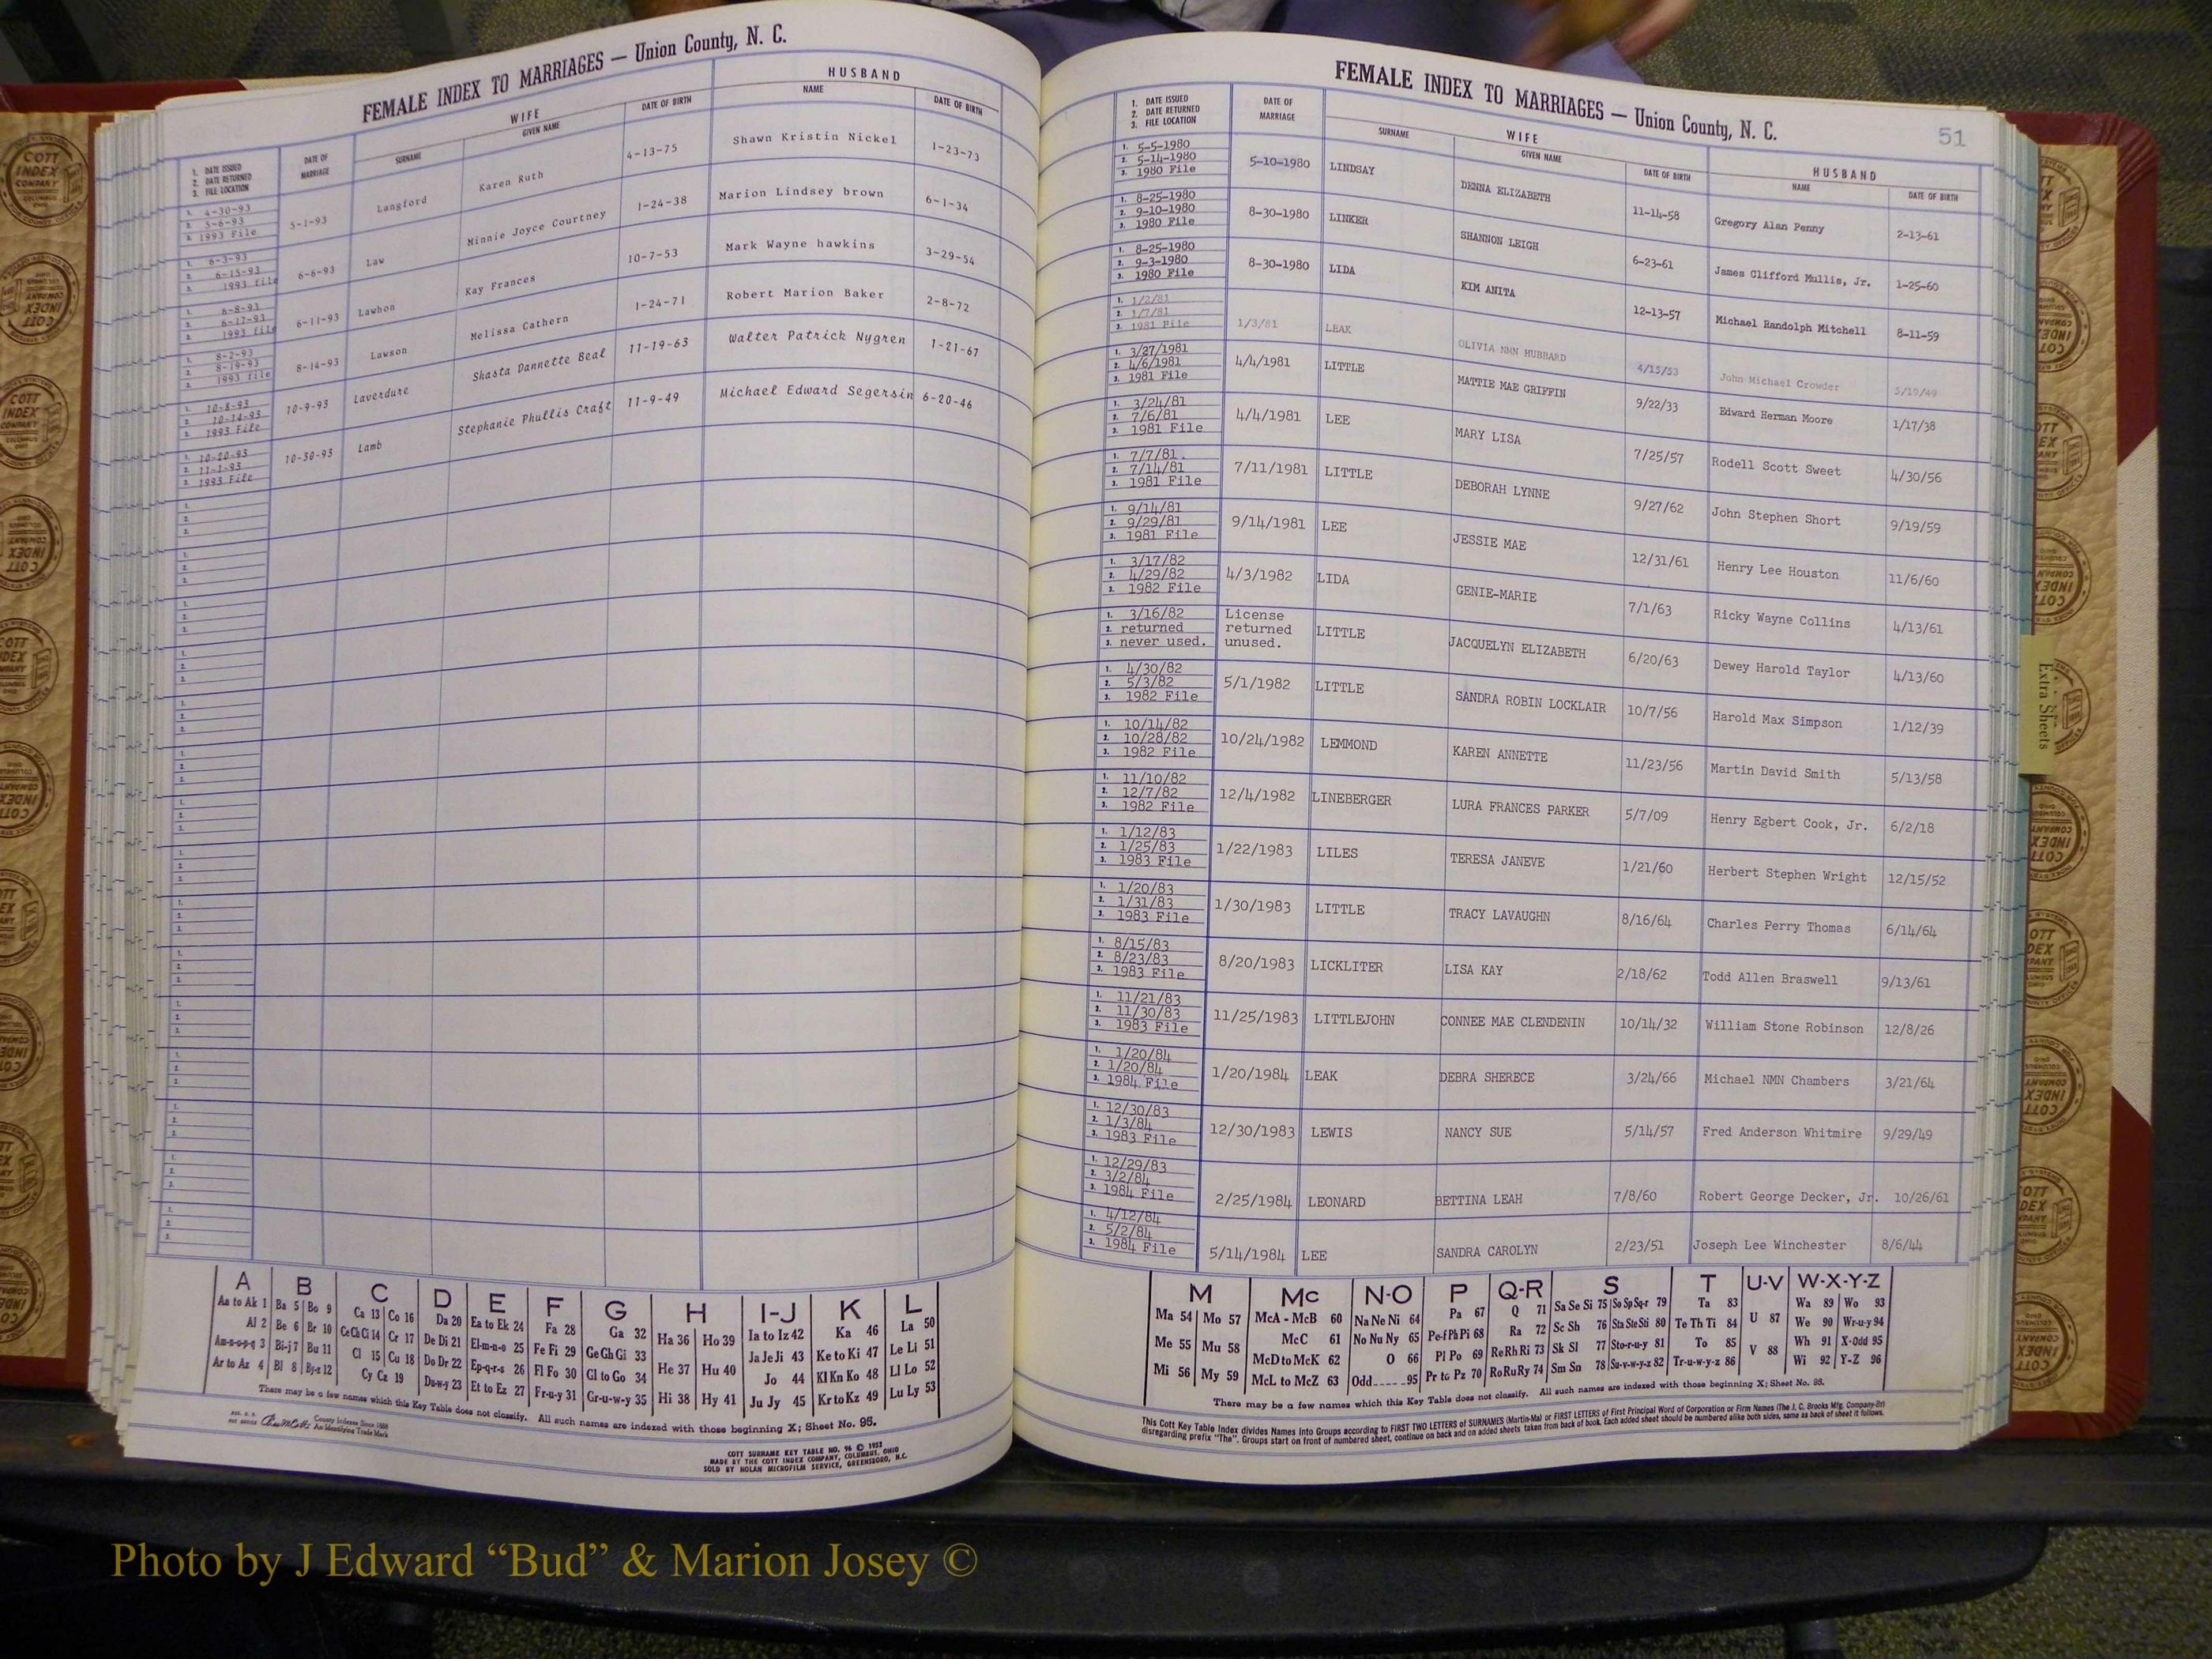 FEMALE INDEX TO MARRIAGES — Union County, N. C.
1. DATE ISSUED
2. DATE RETURNED
3. FILE LOCATION
DATE OF MARRIAGE
WIFE
SURNAME GIVEN NAME DATE OF BIRTH
HUSBAND
NAME DATE OF BIRTH
1. 4-30-93
2. 5-6-93
3. 1993 File
5-1-93 Langford Karen Ruth 4-13-75 Shawn Kristin Nickel 1-23-73
1. 6-3-93
2. 6-15-93
3. 1993 file
6-6-93 Law Minnie Joyce Courtney 1-24-38 Marion Lindsey brown 6-1-34
1. 6-8-93
2. 6-17-93
3. 1993 file
6-11-93 Lawhon Kay Frances 10-7-53 Mark Wayne hawkins 3-29-54
1. 8-2-93
2. 8-19-93
3. 1993 file
8-14-93 Lawson Melissa Cathern 1-24-71 Robert Marion Baker 2-8-72
1. 10-8-93
2. 10-14-93
3. 1993 File
10-9-93 Laverdure Shasta Dannette Beal 11-19-63 Walter Patrick Nygren 1-21-67
1. 10-20-93
2. 11-1-93
3. 1993 File
10-30-93 Lamb Stephanie Phullis Craft 11-9-49 Michael Edward Segersin 6-20-46
A B C D E F G H I-J K L
Aa to Ak 1 Ba 5 Bo 9 Ca 13 Co 16 Da 20 Ea to Ek 24 Fa 28 Ga 32 Ha 36 Ho 39 Ia to Iz 42 Ka 46 La 50
Al 2 Be 6 Br 10 Ce Ch Ci 14 Cr 17 De Di 21 El-m-n-o 25 Fe Fi 29 Ge Gh Gi 33 He 37 Hu 40 Ja Je Ji 43 Ke to Ki 47 Le Li 51
Am-n-o-p-q 3 Bi-j 7 Bu 11 Cl 15 Cu 18 Do Dr 22 Ep-q-r-s 26 Fl Fo 30 Gl to Go 34 Hi 38 Hy 41 Jo 44 Kl Kn Ko 48 Ll Lo 52
Ar to Az 4 Bl 8 By-z 12 Cy Cz 19 Du-w-y 23 Et to Ez 27 Fr-u-y 31 Gr-u-w-y 35 Ju Jy 45 Kr to Kz 49 Lu Ly 53
There may be a few names which this Key Table does not classify. All such names are indexed with those beginning X; Sheet No. 95.
County Indexes Since 1888
An Identifying Trade Mark
COTT SURNAME KEY TABLE NO. 96 © 1952
MADE BY THE COTT INDEX COMPANY, COLUMBUS, OHIO
SOLD BY NOLAN MICROFILM SERVICE, GREENSBORO, N.C.
FEMALE INDEX TO MARRIAGES — Union County, N. C.
51
1. DATE ISSUED
2. DATE RETURNED
3. FILE LOCATION
DATE OF MARRIAGE
WIFE
SURNAME GIVEN NAME DATE OF BIRTH
HUSBAND
NAME DATE OF BIRTH
1. 5-5-1980
2. 5-14-1980
3. 1980 File
5-10-1980 LINDSAY DENNA ELIZABETH 11-14-58 Gregory Alan Penny 2-13-61
1. 8-25-1980
2. 9-10-1980
3. 1980 File
8-30-1980 LINKER SHANNON LEIGH 6-23-61 James Clifford Mullis, Jr. 1-25-60
1. 8-25-1980
2. 9-3-1980
3. 1980 File
8-30-1980 LIDA KIM ANITA 12-13-57 Michael Randolph Mitchell 8-11-59
1. 1/2/81
2. 1/7/81
3. 1981 File
1/3/81 LEAK OLIVIA NMN HUBBARD 4/15/53 John Michael Crowder 5/19/49
1. 3/27/1981
2. 4/6/1981
3. 1981 File
4/4/1981 LITTLE MATTIE MAE GRIFFIN 9/22/33 Edward Herman Moore 1/17/38
1. 3/24/81
2. 7/6/81
3. 1981 File
4/4/1981 LEE MARY LISA 7/25/57 Rodell Scott Sweet 4/30/56
1. 7/7/81.
2. 7/14/81
3. 1981 File
7/11/1981 LITTLE DEBORAH LYNNE 9/27/62 John Stephen Short 9/19/59
1. 9/14/81
2. 9/29/81
3. 1981 File
9/14/1981 LEE JESSIE MAE 12/31/61 Henry Lee Houston 11/6/60
1. 3/17/82
2. 4/29/82
3. 1982 File
4/3/1982 LIDA GENIE-MARIE 7/1/63 Ricky Wayne Collins 4/13/61
1. 3/16/82
2. returned
3. never used.
License returned unused. LITTLE JACQUELYN ELIZABETH 6/20/63 Dewey Harold Taylor 4/13/60
1. 4/30/82
2. 5/3/82
3. 1982 File
5/1/1982 LITTLE SANDRA ROBIN LOCKLAIR 10/7/56 Harold Max Simpson 1/12/39
1. 10/14/82
2. 10/28/82
3. 1982 File
10/24/1982 LEMMOND KAREN ANNETTE 11/23/56 Martin David Smith 5/13/58
1. 11/10/82
2. 12/7/82
3. 1982 File
12/4/1982 LINEBERGER LURA FRANCES PARKER 5/7/09 Henry Egbert Cook, Jr. 6/2/18
1. 1/12/83
2. 1/25/83
3. 1983 File
1/22/1983 LILES TERESA JANEVE 1/21/60 Herbert Stephen Wright 12/15/52
1. 1/20/83
2. 1/31/83
3. 1983 File
1/30/1983 LITTLE TRACY LAVAUGHN 8/16/64 Charles Perry Thomas 6/14/64
1. 8/15/83
2. 8/23/83
3. 1983 File
8/20/1983 LICKLITER LISA KAY 2/18/62 Todd Allen Braswell 9/13/61
1. 11/21/83
2. 11/30/83
3. 1983 File
11/25/1983 LITTLEJOHN CONNEE MAE CLENDENIN 10/14/32 William Stone Robinson 12/8/26
1. 1/20/84
2. 1/20/84
3. 1984 File
1/20/1984 LEAK DEBRA SHERECE 3/24/66 Michael NMN Chambers 3/21/64
1. 12/30/83
2. 1/3/84
3. 1983 File
12/30/1983 LEWIS NANCY SUE 5/14/57 Fred Anderson Whitmire 9/29/49
1. 12/29/83
2. 3/2/84
3. 1984 File
2/25/1984 LEONARD BETTINA LEAH 7/8/60 Robert George Decker, Jr. 10/26/61
1. 4/12/84
2. 5/2/84
3. 1984 File
5/14/1984 LEE SANDRA CAROLYN 2/23/51 Joseph Lee Winchester 8/6/44
M Mc N-O P Q-R S T U-V W-X-Y-Z
Ma 54 Mo 57 McA - McB 60 Na Ne Ni 64 Pa 67 Q 71 Sa Se Si 75 So Sp Sq-r 79 Ta 83 U 87 Wa 89 Wo 93
Me 55 Mu 58 McC 61 No Nu Ny 65 Pe-f Ph Pi 68 Ra 72 Sc Sh 76 Sta Ste Sti 80 Te Th Ti 84 V 88 We 90 Wr-u-y 94
Mi 56 My 59 McD to McK 62 O 66 Pl Po 69 Re Rh Ri 73 Sk Sl 77 Sto-r-u-y 81 To 85 Wh 91 X-Odd 95
McL to McZ 63 Odd 95 Pr to Pz 70 Ro Ru Ry 74 Sm Sn 78 Su-v-w-y-z 82 Tr-u-w-y-z 86 Wi 92 Y-Z 96
There may be a few names which this Key Table does not classify. All such names are indexed with those beginning X; Sheet No. 95.
This Cott Key Table Index divides Names into Groups according to FIRST TWO LETTERS of SURNAMES (Martin-Ma) or FIRST LETTERS of First Principal Word of Corporation or Firm Names (The J. C. Brooks Mfg. Company-Br)
disregarding prefix "The". Groups start on front of numbered sheet, continue on back and on added sheets taken from back of book. Each added sheet should be numbered alike both sides, same as back of sheet it follows.
Extra Sheets
COTT INDEX COMPANY
Photo by J Edward “Bud” & Marion Josey ©